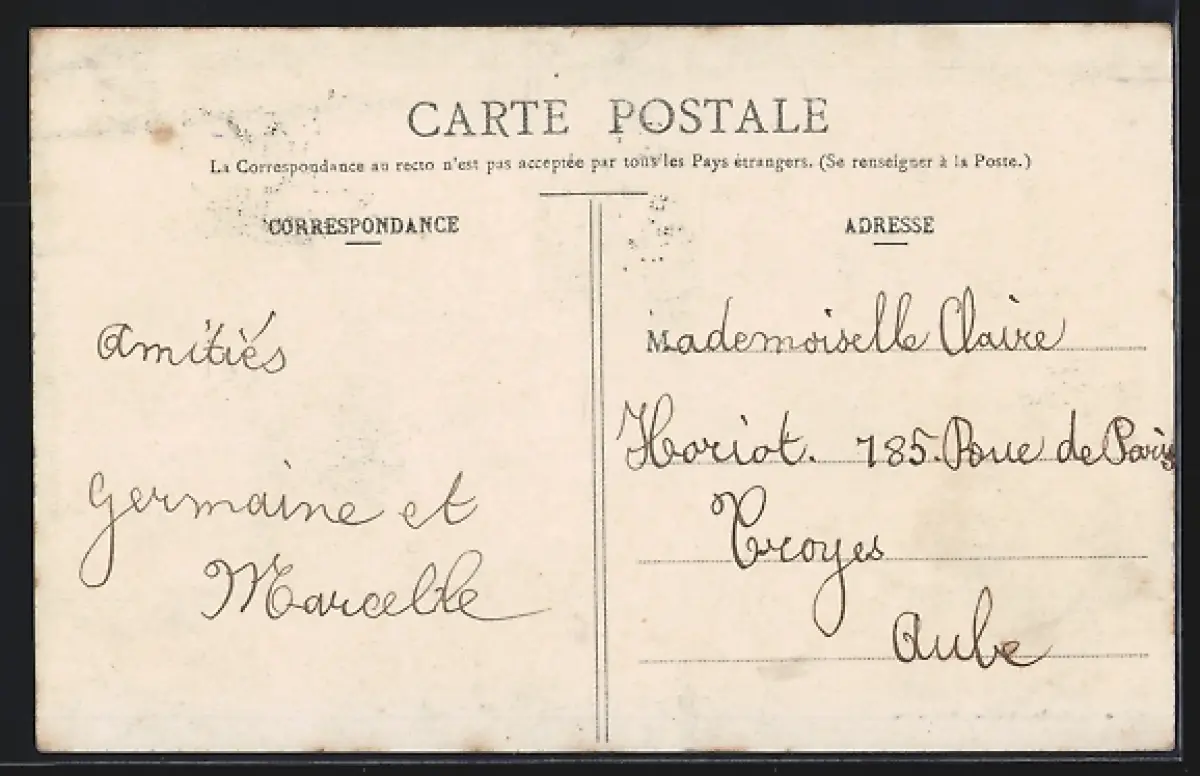 CARTE POSTALE
La Correspondance au recto n'est pas acceptée par tous les Pays étrangers. (Se renseigner à la Poste.)
CORRESPONDANCE
Amitiés
Germaine et
Marcelle
ADRESSE
Mademoiselle Claire
Horiot. 185. Rue de Paris
Troyes
Aube